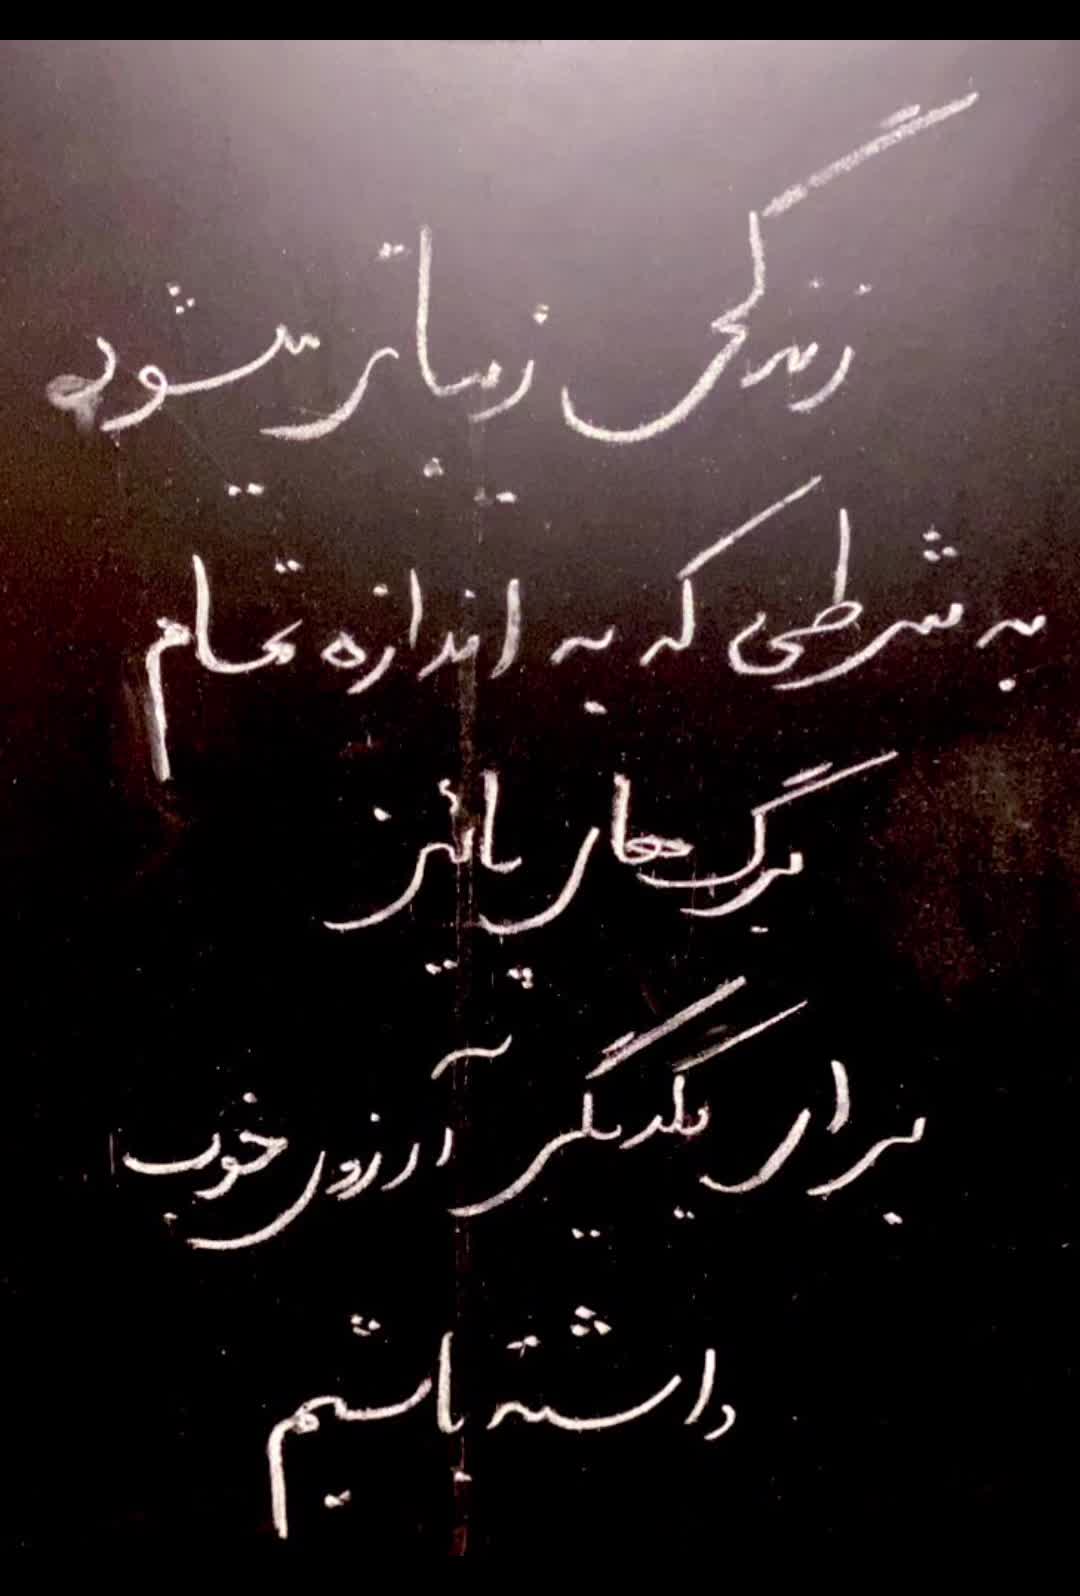 زندگی زیباتر میشود
به شرطی که به اندازه تمام
برگ های پائیز
برای یکدیگر آرزوی خوب
داشته باشیم